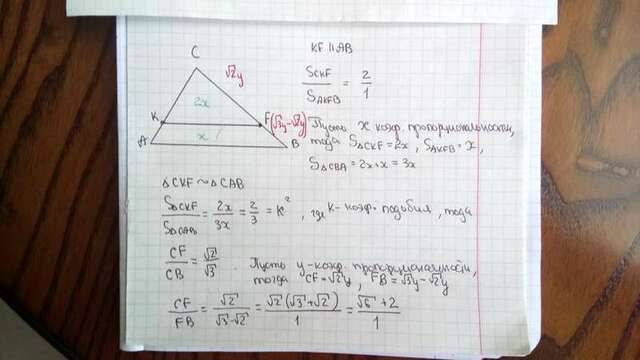 C
K
A
F
B
2x
x
√2y
(√3y-√2y)
KF || AB
S_CKF / S_AKFB = 2 / 1
Пусть x коэф. пропорциональности,
тогда S_ΔCKF = 2x, S_AKFB = x,
S_ΔCBA = 2x+x = 3x
ΔCKF ~ ΔCAB
S_ΔCKF / S_ΔCAB = 2x / 3x = 2 / 3 = k², где k-коэф. подобия, тогда
CF / CB = √2 / √3. Пусть y-коэф. пропорциональности,
тогда CF = √2y, FB = √3y - √2y
CF / FB = √2 / (√3-√2) = √2(√3+√2) / 1 = (√6+2) / 1